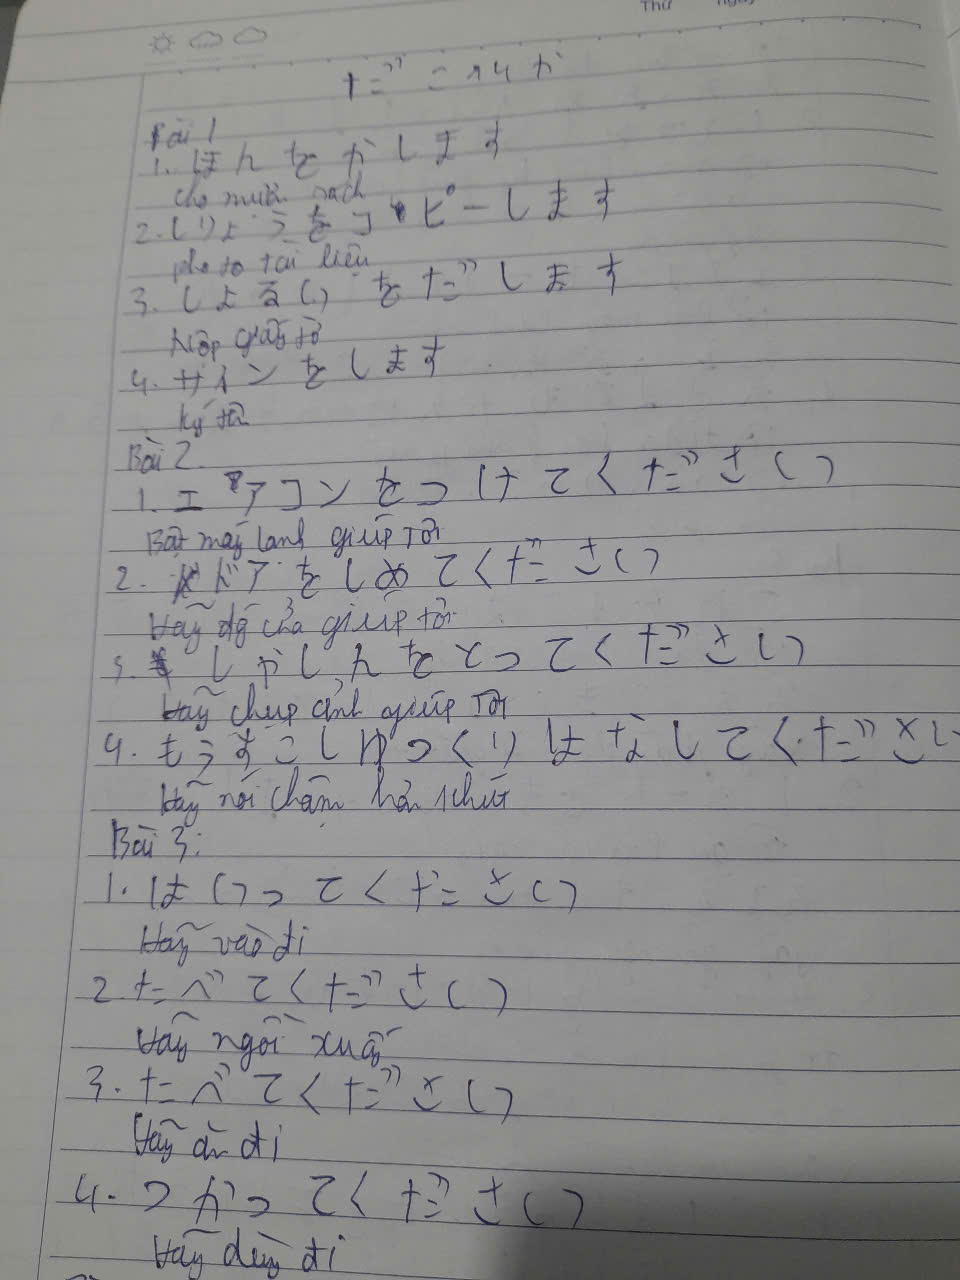 Thứ
Bài 1
1. ほんをかします
cho mượn sách
2. しりょうをコピーします
photo tài liệu
3. しょるいをだします
Nộp giấy tờ
4. サインをします
ký tên
Bài 2.
1. エアコンをつけてください
Bật máy lạnh giúp tôi
2. ドアをしめてください
Hãy đóng cửa giúp tôi
3. しゃしんをとってください
Hãy chụp ảnh giúp tôi
4. もうすこしゆっくりはなしてください
Hãy nói chậm hơn 1 chút
Bài 3:
1. はいってください
Hãy vào đi
2. たべてください
Hãy ngồi xuống
3. たべてください
Hãy ăn đi
4. つかってください
Hãy dùng đi